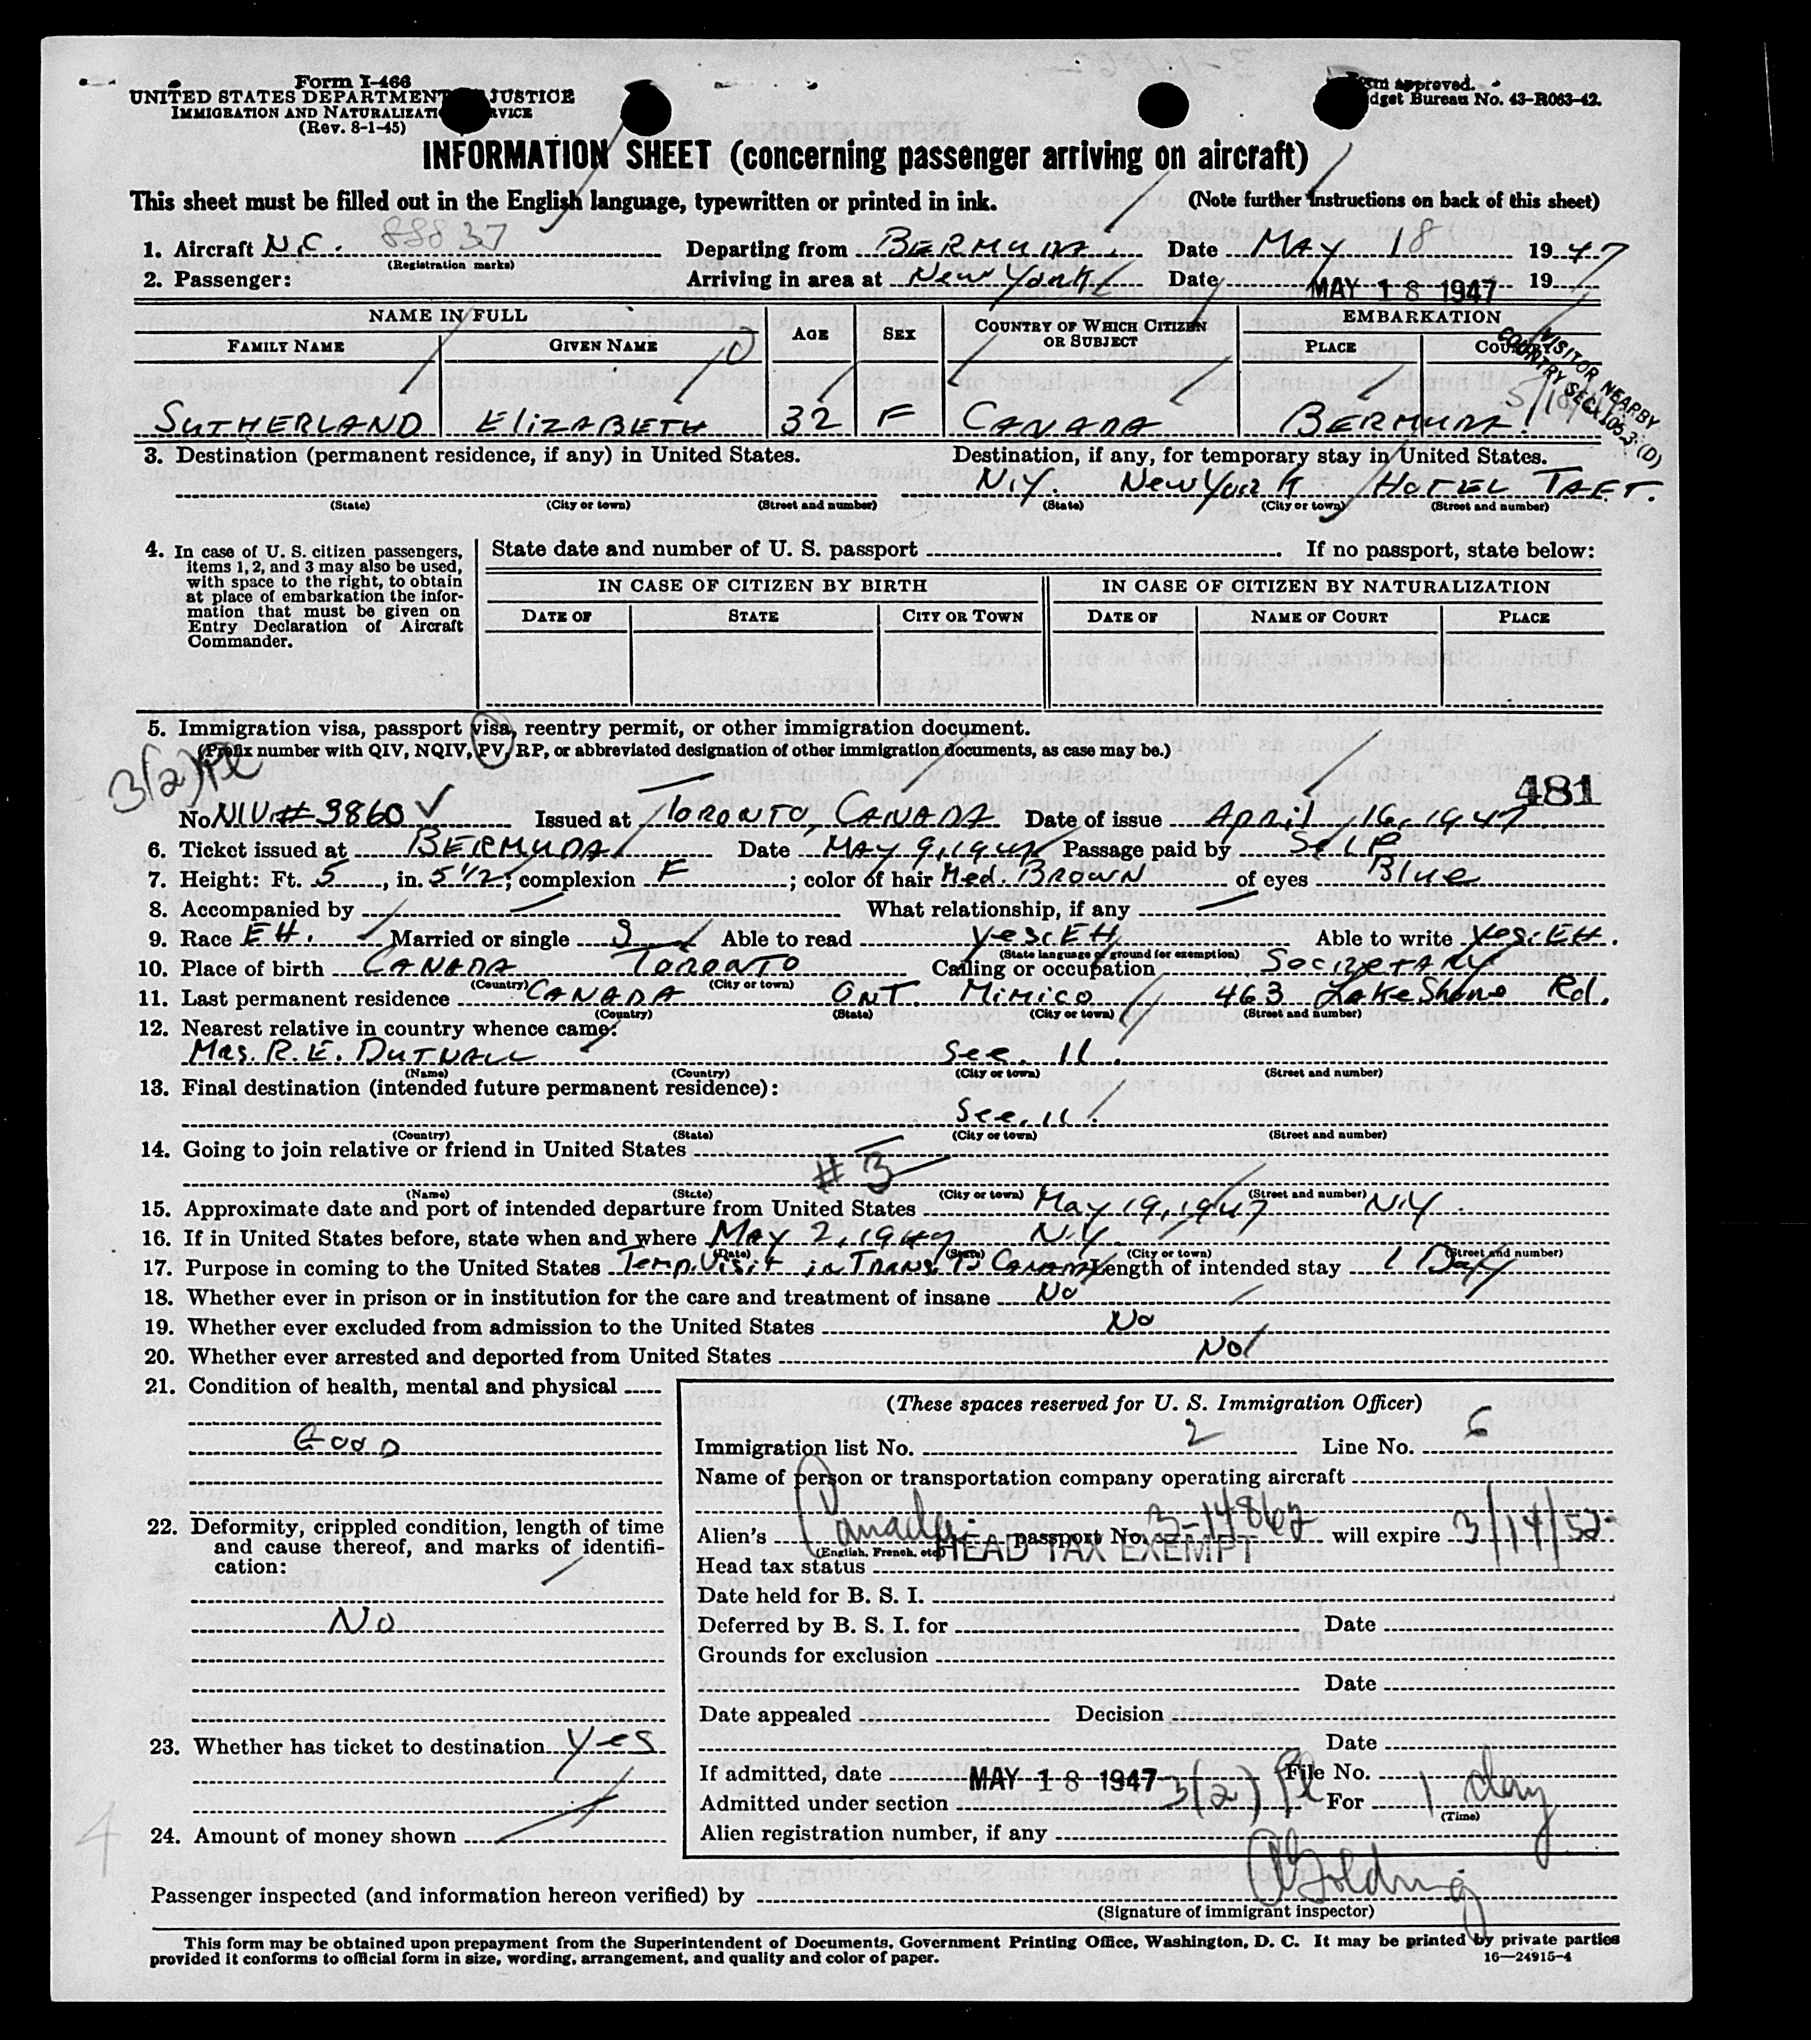 Form I-466
UNITED STATES DEPARTMENT JUSTICE
IMMIGRATION AND NATURALIZATI RVICE
(Rev. 8-1-45)
Form approved.
dget Bureau No. 43-R063-42.
INFORMATION SHEET (concerning passenger arriving on aircraft)
This sheet must be filled out in the English language, typewritten or printed in ink. (Note further instructions on back of this sheet)
1. Aircraft N.C. 88837 Departing from BERMUDA. Date MAY 18 1947
(Registration marks)
2. Passenger: Arriving in area at New York Date MAY 18 1947 19
NAME IN FULL AGE SEX COUNTRY OF WHICH CITIZEN OR SUBJECT EMBARKATION
FAMILY NAME GIVEN NAME PLACE COUNTRY
VISITOR NEARBY
COUNTRY SEC. 105.3 (D)
SUTHERLAND ELIZABETH 32 F CANADA BERMUDA
3. Destination (permanent residence, if any) in United States. Destination, if any, for temporary stay in United States.
N.Y. New York HOTEL TAFT.
(State) (City or town) (Street and number) (State) (City or town) (Street and number)
4. In case of U. S. citizen passengers, items 1, 2, and 3 may also be used, with space to the right, to obtain at place of embarkation the information that must be given on Entry Declaration of Aircraft Commander.
State date and number of U. S. passport If no passport, state below:
IN CASE OF CITIZEN BY BIRTH IN CASE OF CITIZEN BY NATURALIZATION
DATE OF STATE CITY OR TOWN DATE OF NAME OF COURT PLACE
5. Immigration visa, passport visa, reentry permit, or other immigration document.
(Prefix number with QIV, NQIV, PV, RP, or abbreviated designation of other immigration documents, as case may be.)
3(2) Pl
481
No. NIV # 3860 ✓ Issued at TORONTO, CANADA Date of issue April 16, 1947
6. Ticket issued at BERMUDA Date MAY 9, 1947 Passage paid by SELF
7. Height: Ft. 5, in. 5 1/2; complexion F; color of hair Med. BROWN of eyes Blue
8. Accompanied by What relationship, if any
9. Race EH. Married or single S Able to read yes. EH Able to write yes. EH.
(State language or ground for exemption)
10. Place of birth CANADA TORONTO Calling or occupation SECRETARY
(Country) (City or town)
11. Last permanent residence CANADA ONT. MIMICO 463 Lake Shore Rd.
(Country) (State) (City or town) (Street and number)
12. Nearest relative in country whence came:
Mrs. R. E. See. 11.
(Name) (Country) (City or town) (Street and number)
13. Final destination (intended future permanent residence):
See. 11.
(Country) (State) (City or town) (Street and number)
14. Going to join relative or friend in United States
# 3
(Name) (State) (City or town) (Street and number)
15. Approximate date and port of intended departure from United States May 19, 1947 N.Y.
16. If in United States before, state when and where MAY 2, 1947 N.Y.
(Date) (State) (City or town) (Street and number)
17. Purpose in coming to the United States Temp. Visit in Trans. to CANADA Length of intended stay 1 Day
18. Whether ever in prison or in institution for the care and treatment of insane No
19. Whether ever excluded from admission to the United States No
20. Whether ever arrested and deported from United States No
21. Condition of health, mental and physical
GOOD
22. Deformity, crippled condition, length of time and cause thereof, and marks of identification:
NO
23. Whether has ticket to destination Yes
24. Amount of money shown
(These spaces reserved for U. S. Immigration Officer)
Immigration list No. 2 Line No. 6
Name of person or transportation company operating aircraft
Alien's Canadn. passport No. 3-14862 will expire 3/14/52
(English, French, etc.)
Head tax status HEAD TAX EXEMPT
Date held for B. S. I.
Deferred by B. S. I. for Date
Grounds for exclusion
Date
Date appealed Decision
Date
If admitted, date MAY 18 1947 File No.
Admitted under section 3(2) Pl For 1 day
(Time)
Alien registration number, if any
4
Passenger inspected (and information hereon verified) by Golding
(Signature of immigrant inspector)
This form may be obtained upon prepayment from the Superintendent of Documents, Government Printing Office, Washington, D. C. It may be printed by private parties
provided it conforms to official form in size, wording, arrangement, and quality and color of paper.
16—24915-4